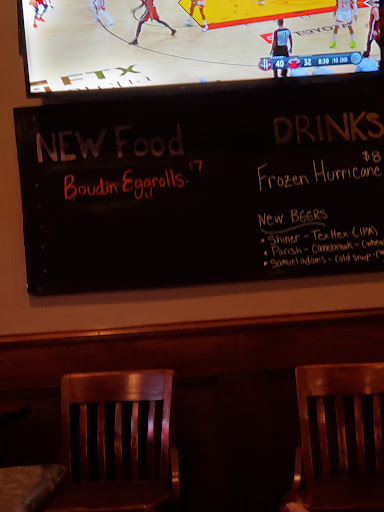 FTX
TOYO
40 32 8:30
NEW Food
Boudin Eggrolls $7
DRINKS
$8
Frozen Hurricane
NEW BEERS
• Shiner - Tex Hex (IPA)
• Parish - Canebrake - (whe
• Samuel adams - cold snap -